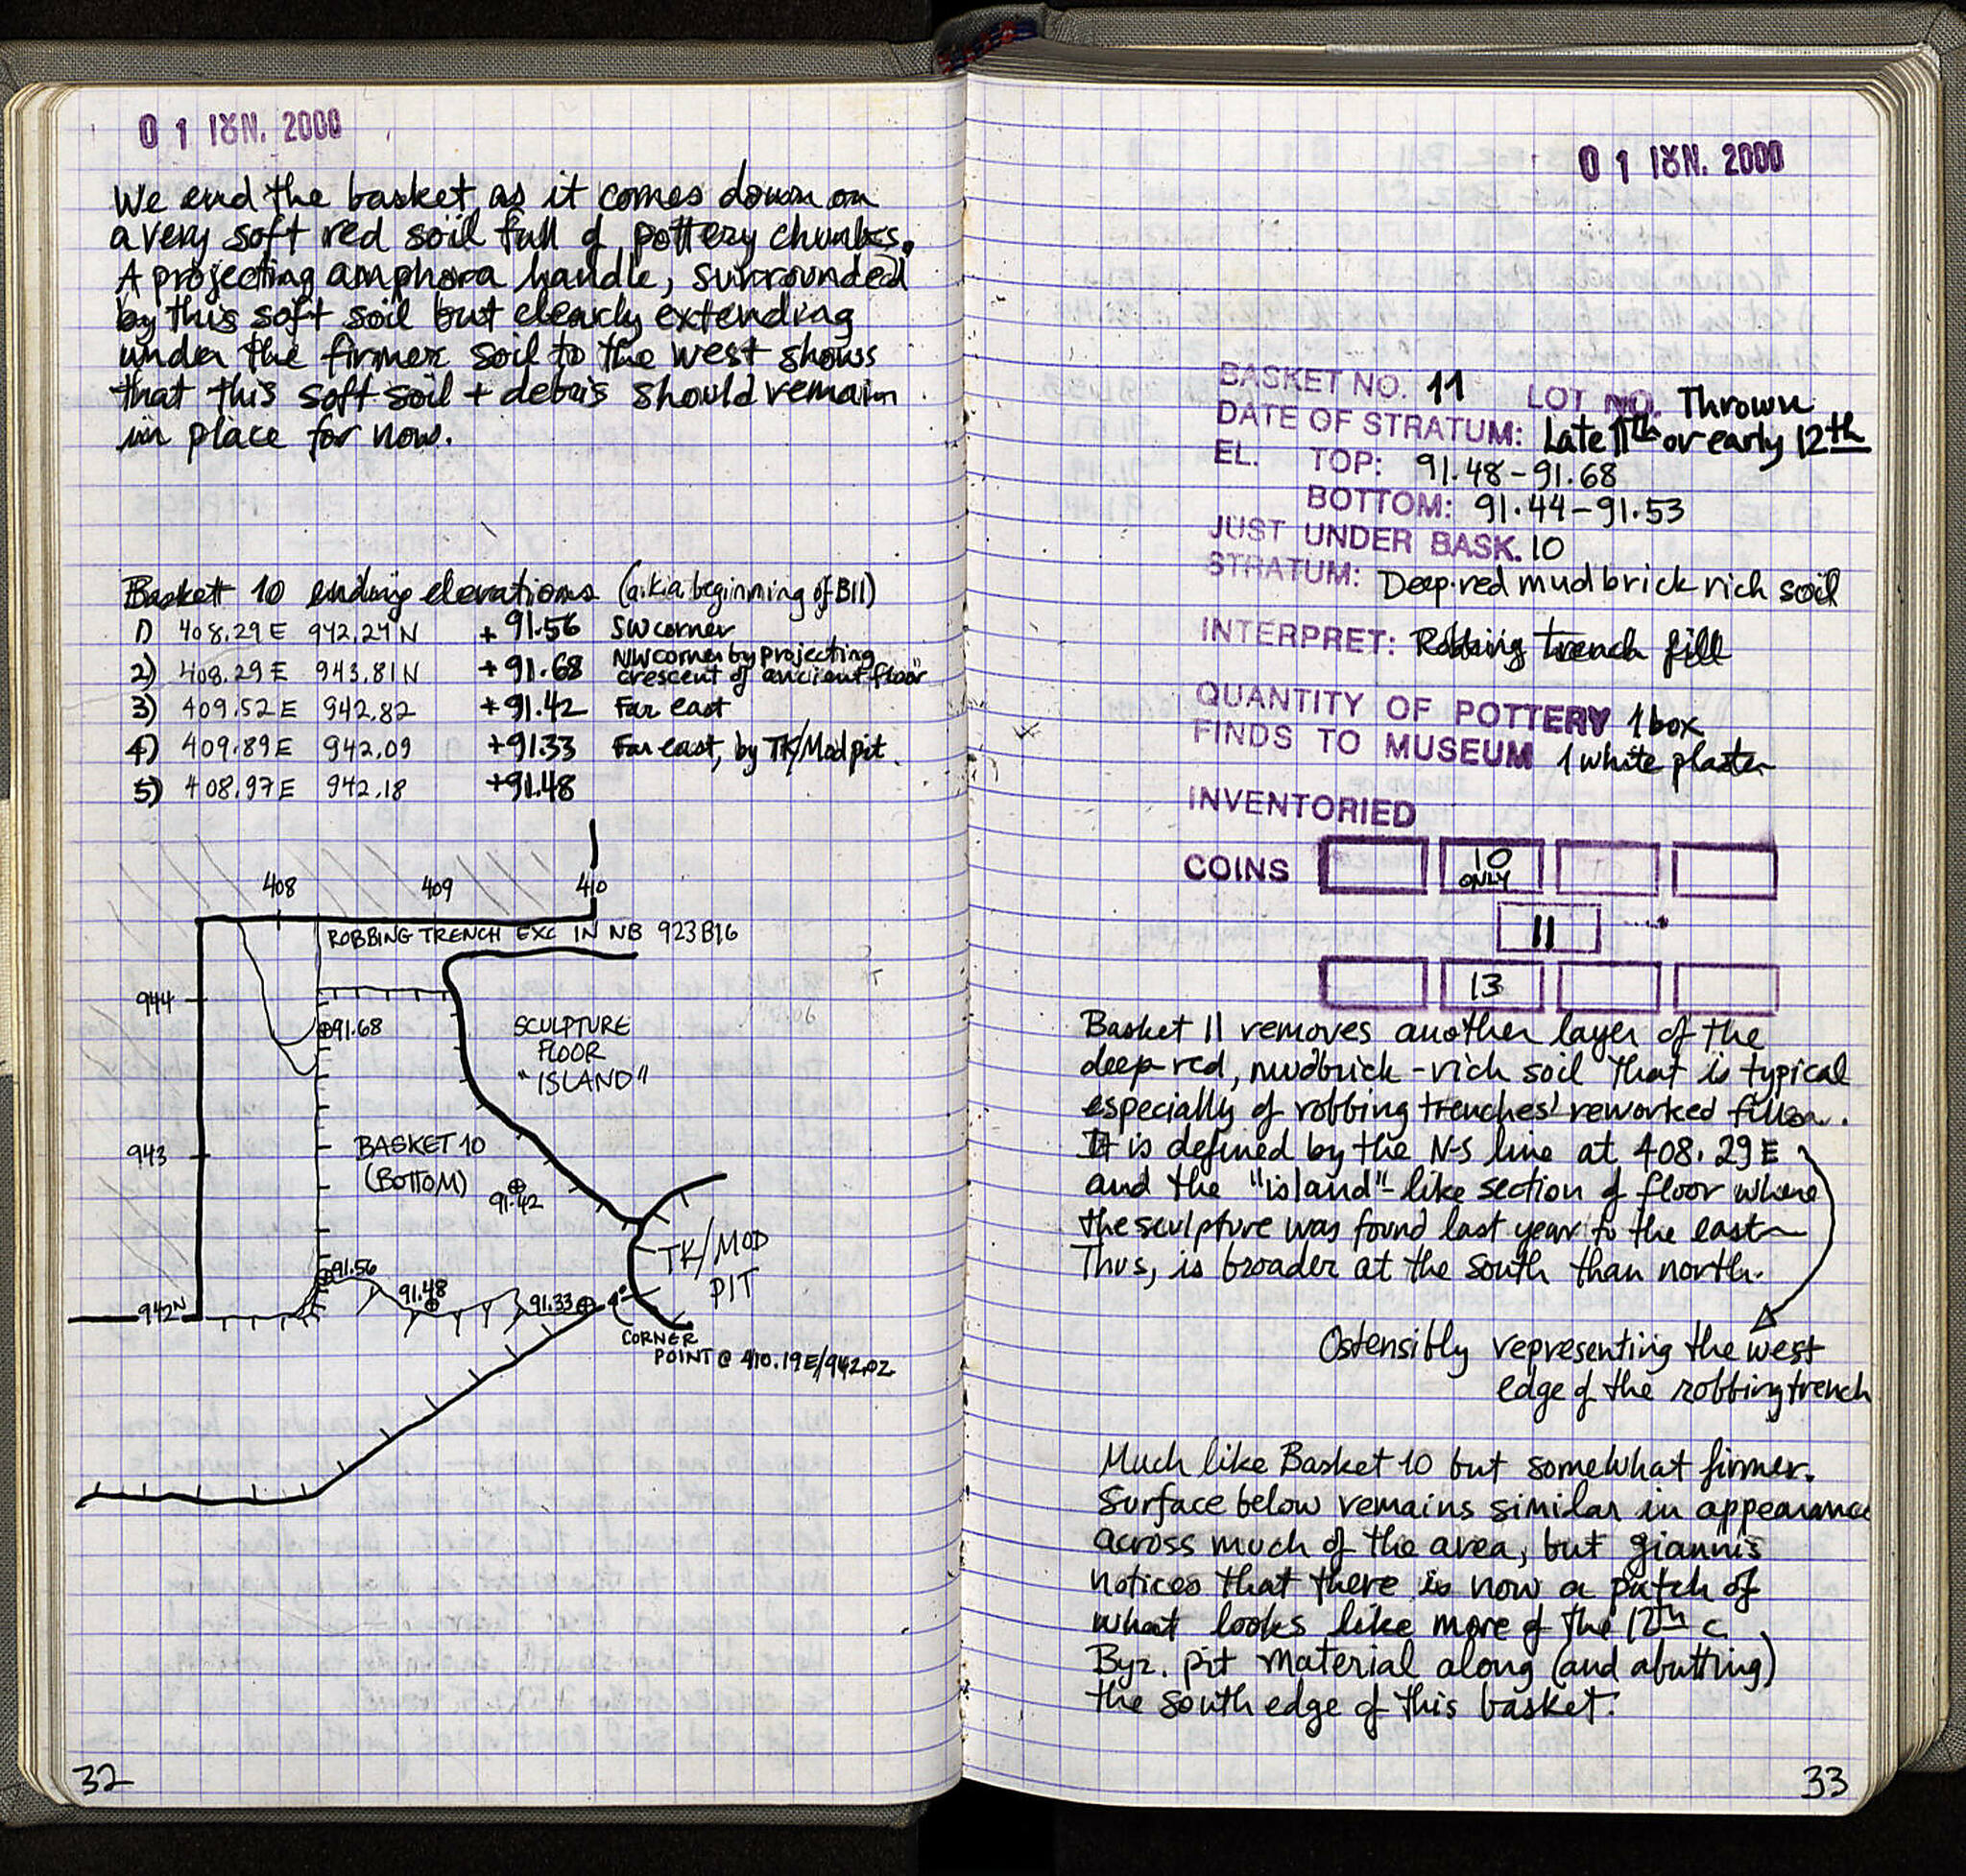 01 ΙΟΥΝ. 2000
We end the basket as it comes down on
a very soft red soil full of pottery chunks.
A projecting amphora handle, surrounded
by this soft soil but clearly extending
under the firmer soil to the west shows
that this soft soil + debris should remain
in place for now.
Basket 10 ending elevations (a.k.a. beginning of B11)
1) 408.29 E 942.24 N +91.56 SW corner
2) 408.29 E 943.81 N +91.68 NW corner by projecting crescent of ancient "floor"
3) 409.52 E 942.82 +91.42 Far east
4) 409.89 E 942.09 +91.33 Far east, by TK/Mod pit.
5) 408.97 E 942.18 +91.48
408 409 410
ROBBING TRENCH EXC IN NB 923 B16
944
91.68
SCULPTURE
FLOOR
"ISLAND"
943
BASKET 10
(BOTTOM)
91.42
TK/MOD
PIT
91.56
91.48
91.33
942N
CORNER
POINT @ 410.19E/942.02
32
01 ΙΟΥΝ. 2000
BASKET NO. 11 LOT NO. Thrown
DATE OF STRATUM: Late 11th or early 12th
EL. TOP: 91.48-91.68
BOTTOM: 91.44-91.53
JUST UNDER BASK. 10
STRATUM: Deep red mudbrick rich soil
INTERPRET: Robbing trench fill
QUANTITY OF POTTERY 1 box
FINDS TO MUSEUM 1 white plaster
INVENTORIED
COINS 10 ONLY
11
13
Basket 11 removes another layer of the
deep red, mudbrick-rich soil that is typical
especially of robbing trenches' reworked fills.
It is defined by the N-S line at 408.29 E
and the "island"-like section of floor where
the sculpture was found last year to the east
Thus, is broader at the south than north.
Ostensibly representing the west
edge of the robbing trench
Much like Basket 10 but somewhat firmer.
Surface below remains similar in appearance
across much of the area, but Giannis
notices that there is now a patch of
what looks like more of the 12th c.
Byz. pit material along (and abutting)
the south edge of this basket.
33